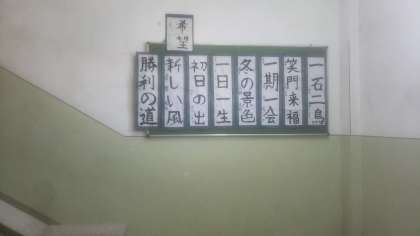 希望
一石二鳥
笑門来福
一期一会
冬の景色
一日一生
初日の出
新しい風
勝利の道